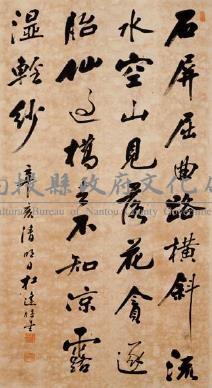 石屏屈曲路橫斜流
水空山見落花貪逐
胎仙過橋去不知涼露
濕輕紗
辛亥清明日杜逢時書
投縣政府文化
Cultural Bureau of Nantou County Government